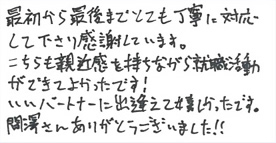 最初から最後までとても丁寧に対応
して下さり感謝しています。
こちらも親近感を持ちながら就職活動
ができてよかったです!
いいパートナーに出逢えて嬉しかったです。
関澤さんありがとうございました!!